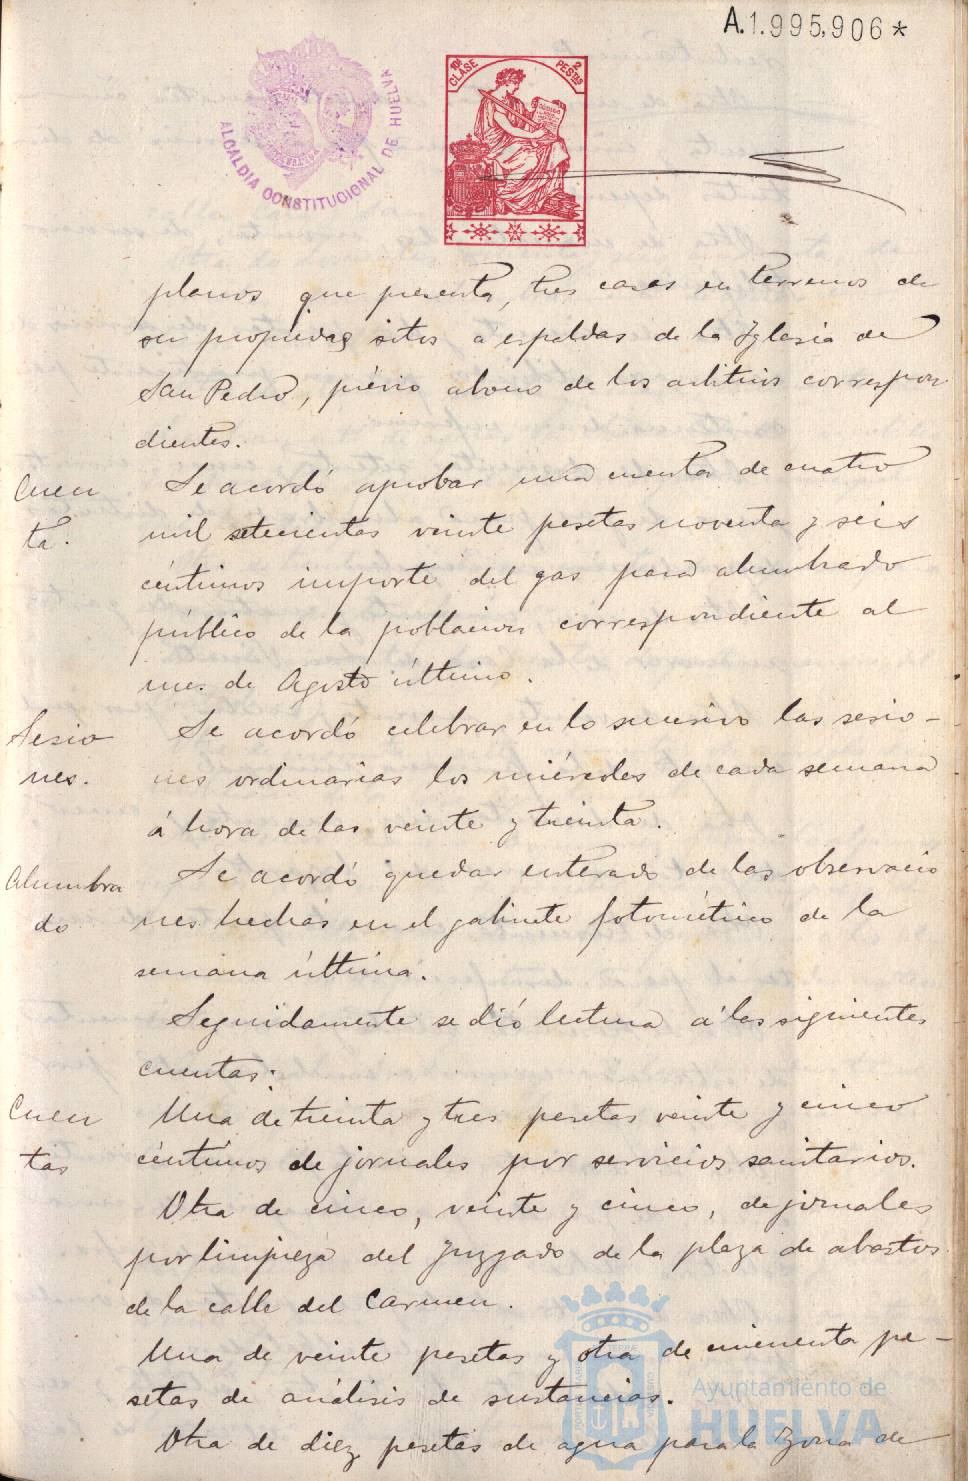 A.1.995,906*
ALCALDIA CONSTITUCIONAL DE HUELVA
10ª CLASE
2 PESTAS
planos que presenta, tres casas en terrenos de
su propiedad sitos á espaldas de la Yglesia de
San Pedro, prévio abono de los arbitrios correspon
dientes.
Cuen
ta.
Se acordó aprobar una cuenta de cuatro
mil setecientas veinte pesetas noventa y seis
céntimos importe del gas para alumbrado
público de la poblacion correspondiente al
mes de Agosto último.
Sesio
nes.
Se acordó celebrar en lo sucesivo las sesio-
nes ordinarias los miércoles de cada semana
á hora de las veinte y treinta.
Alumbra
do
Se acordó quedar enterado de las observacio
nes hechas en el gabinete fotométrico de la
semana última.
Seguidamente se dió lectura á las siguientes
cuentas:
Cuen
tas
Una de treinta y tres pesetas veinte y cinco
céntimos de jornales por servicios sanitarios.
Otra de cinco, veinte y cinco, de jornales
por limpieza del Juzgado de la plaza de abastos
de la calle del Carmen.
Una de veinte pesetas y otra de cincuenta pe-
setas de análisis de sustancias.
Otra de diez pesetas de agua para la zona de
Ayuntamiento de
HUELVA